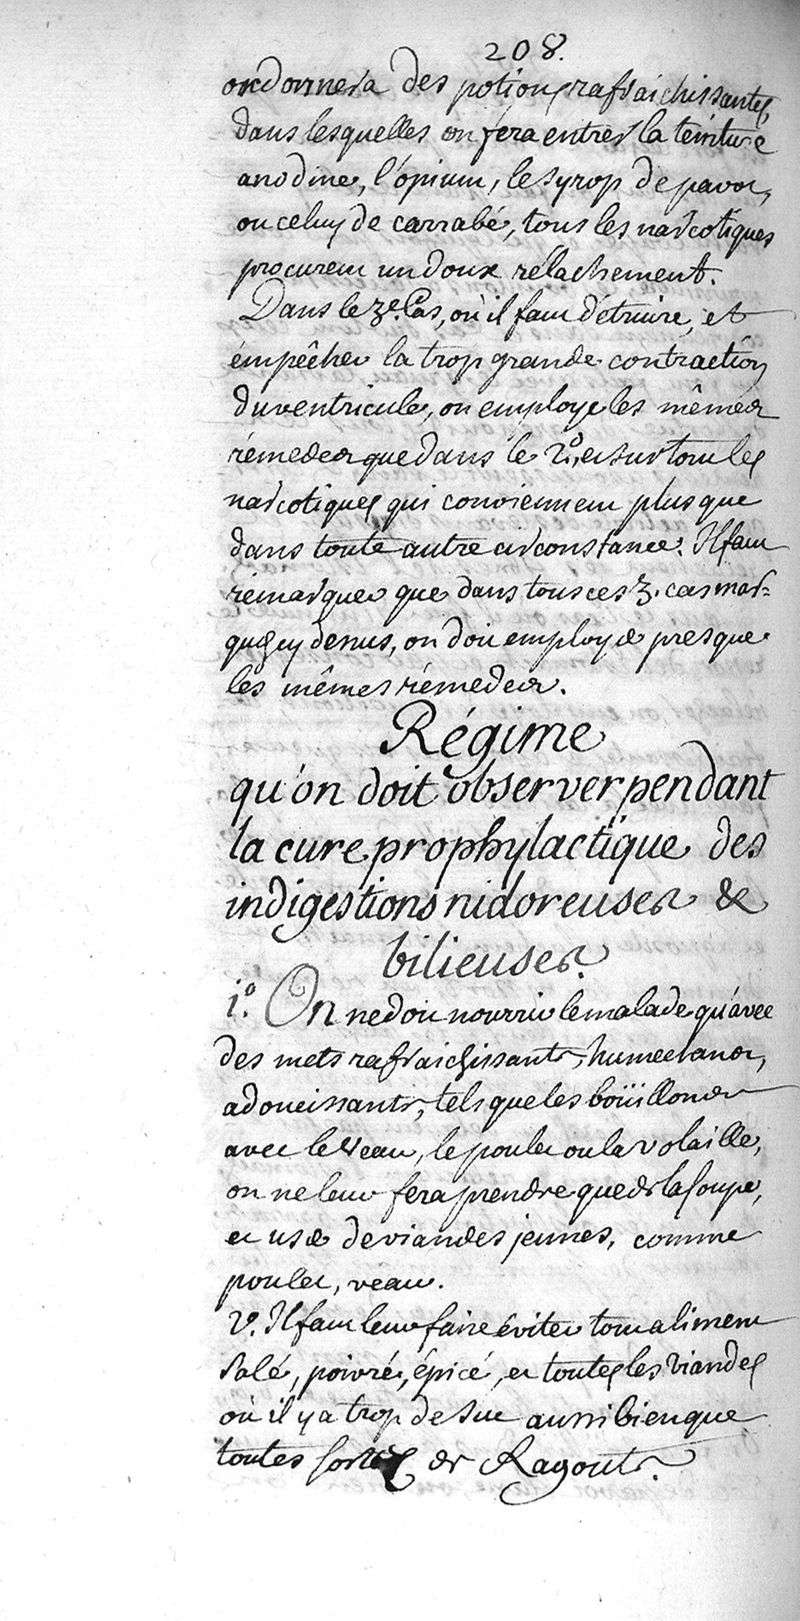 208.
ordonnera des potions rafraichissantes,
dans lesquelles on féra entrer la teinture
anodine, l'ópium, le syrop de pavot,
ou celuy de carrabé, tous les narcotiques
procurent un doux rélachement.
Dans le 3e. Cas, où il faut détruire, et
émpêcher la trop grande contraction
du ventricule, on employe les mêmes
rémedes que dans le 2o, et surtout les
narcotiques qui conviennent plus que
dans toute autre circonstance. Il faut
rémarquer que dans tous ces 3. cas mar=
qués cy dessus, on doit employer presque
les mêmes rémedes.
Régime
qu'on doit observer pendant
la cure prophylactique des
indigestions nidoreuses &
bilieuses.
1o. On ne doit nourrir le malade qu'avec
des mets rafraichissants, humectants,
adoucissants, tels que les boüillons
avec le Veau, le poulet ou la volaille,
on ne leur fera prendre que de la soupe,
et user de viandes jeunes, comme
poulet, veau.
2o. Il faut leur faire éviter tout aliment
salé, poivré, épicé, et toutes les viandes
où il y a trop de suc aussi bien que
toutes sortes de Ragouts.